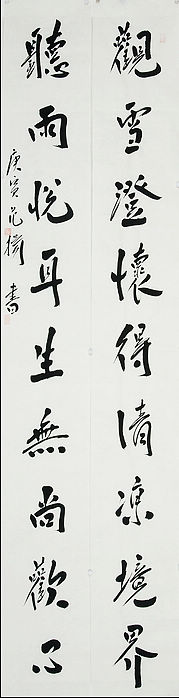 觀雪澄懷得清涼境界
聽雨悅耳生無尚歡心
庚寅 書